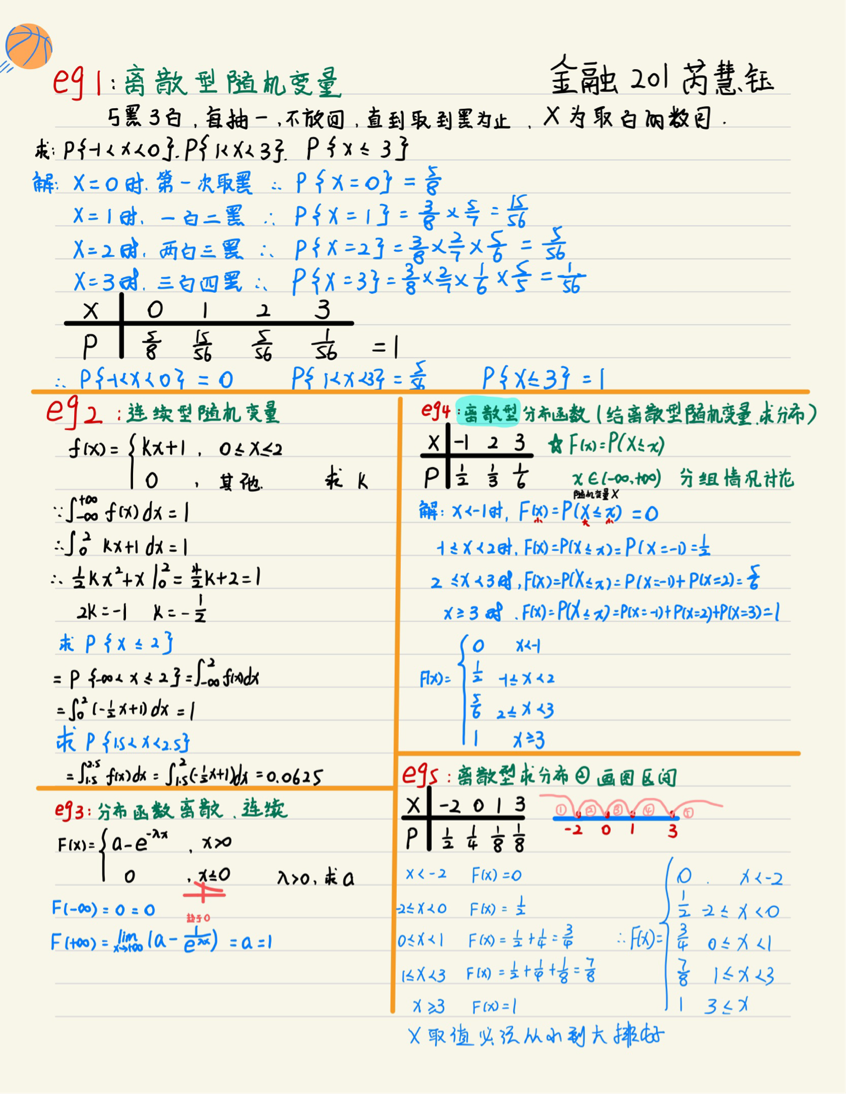 eg1:离散型随机变量
金融201芮慧钰
5黑3白,每抽一,不放回,直到取到黑为止,X为取白的数目.
求:P{-1<X<0}.P{1<X<3}. P{X≤3}
解:X=0时.第一次取黑 ∴ P{X=0}=5/8
X=1时.一白二黑 ∴ P{X=1}=3/8×5/7=15/56
X=2时,两白三黑 ∴ P{X=2}=3/8×2/7×5/6=5/56
X=3时.三白四黑∴ P{X=3}=3/8×2/7×1/6×5/5=1/56
X 0 1 2 3
P 5/8 15/56 5/56 1/56 =1
∴ P{-1<X<0}=0 P{1<X<3}=5/56 P{X≤3}=1
eg2:连续型随机变量
f(x)={Kx+1, 0≤X≤2
0 , 其他. 求 K
∵∫_{-∞}^{+∞} f(x)dx=1
∴∫_0^2 Kx+1 dx=1
∴ 1/2Kx²+x|_0^2=4/2K+2=1
2K=-1 K=-1/2
求 P{X≤2}
=P{-∞<X≤2}=∫_{-∞}^2 f(x)dx
=∫_0^2(-1/2x+1)dx=1
求 P{1.5<X<2.5}
=∫_{1.5}^{2.5} f(x)dx=∫_{1.5}^2(-1/2x+1)dx=0.0625
eg3:分布函数离散、连续
F(x)={a-e^{-λx} , X>0
0 ,X≤0 λ>0,求a
趋于0
F(-∞)=0=0
F(+∞)=lim_{x→+∞}(a-1/e^{λx})=a=1
eg4:离散型分布函数(给离散型随机变量.求分布)
X -1 2 3 ☆F(x)=P(X≤x)
P 1/2 1/3 1/6 x∈(-∞,+∞) 分组情况讨论
随机变量X
解:X<-1时,F(x)=P(X≤x)=0
-1≤X<2时,F(x)=P(X≤x)=P(X=-1)=1/2
2≤X<3时,F(x)=P(X≤x)=P(X=-1)+P(X=2)=5/6
X≥3时.F(x)=P(X≤x)=P(X=-1)+P(X=2)+P(X=3)=1
F(x)={0 X<-1
1/2 -1≤X<2
5/6 2≤X<3
1 X≥3
eg5:离散型求分布②画图区间
X -2 0 1 3
P 1/2 1/4 1/8 1/8
① ② ③ ④ ⑤
-2 0 1 3
X<-2 F(x)=0
-2≤X<0 F(x)=1/2
0≤X<1 F(x)=1/2+1/4=3/4
1≤X<3 F(x)=1/2+1/4+1/8=7/8
X≥3 F(x)=1
∴F(x)={0. X<-2
1/2 -2≤X<0
3/4 0≤X<1
7/8 1≤X<3
1 3≤X
X取值必须从小到大排好